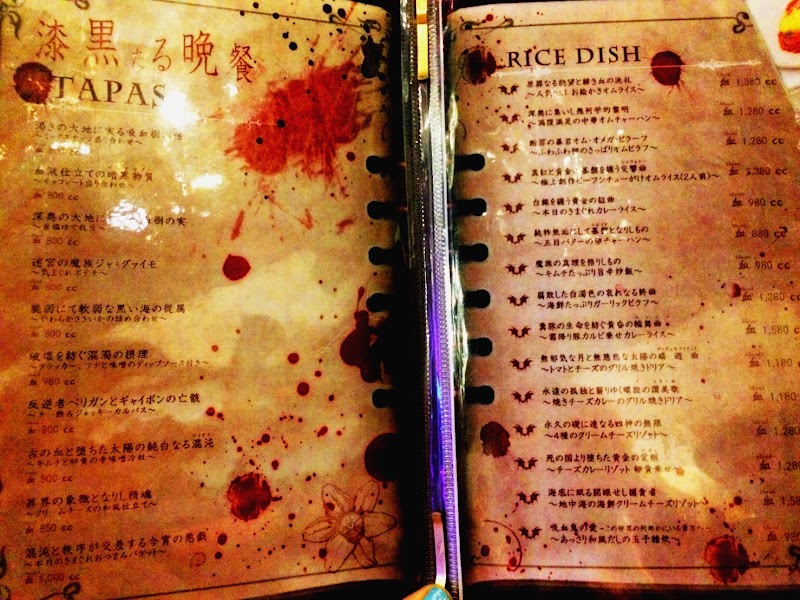 漆黒たる晩餐
TAPAS
血 800 cc
血液仕立ての暗黒物質
血 800 cc
深奥の大地に
血 800 cc
迷宮の魔族ジャ=グァイモ
～気まぐれポテチ～
血 800 cc
脆弱にて軟弱な黒い海の従属
～やわらかさきいかの詰め合わせ～
血 800 cc
破壊を紡ぐ混濁の摂理
～クラッカー、ツナと味噌のディップソース付き～
血 980 cc
反逆者ペリガンとギャイボンの亡骸
血 800 cc
古の血と堕ちた太陽の純白なる混沌
～キムチと卵黄の辛味噌冷奴～
血 500 cc
異界の象徴となりし精魂
～クリームチーズの和風仕立て～
血 850 cc
混沌と秩序が交差する今宵の悪戯
～本日のきまぐれおつまみバゲット～
血 1,000 cc
RICE DISH
～人気No.1 お絵かきオムライス～
血 1,380 cc
深奥に集いし幾何学的黎明
～満腹満足の中華オムチャーハン～
血 1,280 cc
断罪の暴君オム・オメガ・ピラーフ
～ふわふわ卵のさっぱりオムピラフ～
血 1,280 cc
真紅と黄金、基盤を纏う交響曲
～極上創作ビーフシチューがけオムライス(2人前)～
血 2,380 cc
白銀を纏う黄金の組曲
～本日のきまぐれカレーライス～
血 980 cc
純粋無垢にして基礎となりしもの
～五目バターの卵チャーハン～
血 880 cc
魔族の真理を悟りしもの
～キムチたっぷり旨辛炒飯～
血 980 cc
腐敗した白濁色の哀れなる終曲
～海鮮たっぷりガーリックピラフ～
血 1,280 cc
異豚の生命を紡ぐ黄昏の輪舞曲
～霜降り豚カルビ乗せカレーライス～
血 1,580 cc
無邪気な月と無慈悲な太陽の嬉遊曲
～トマトとチーズのグリル焼きドリア～
血 1,180 cc
永遠の孤独と翳りゆく螺旋の讃美歌
～焼きチーズカレーのグリル焼きドリア～
血 1,380 cc
永久の礎に連なる四神の無限
～4種のクリームチーズリゾット～
血 1,280 cc
死の国より堕ちた黄金の覚醒
～チーズカレーリゾット 卵黄乗せ～
血 1,28
海底に眠る開眼せし捕食者
～地中海の海鮮クリームチーズリゾット～
血 1,58
吸血鬼の愛
～あっさり和風だしの玉子雑炊～
血 980